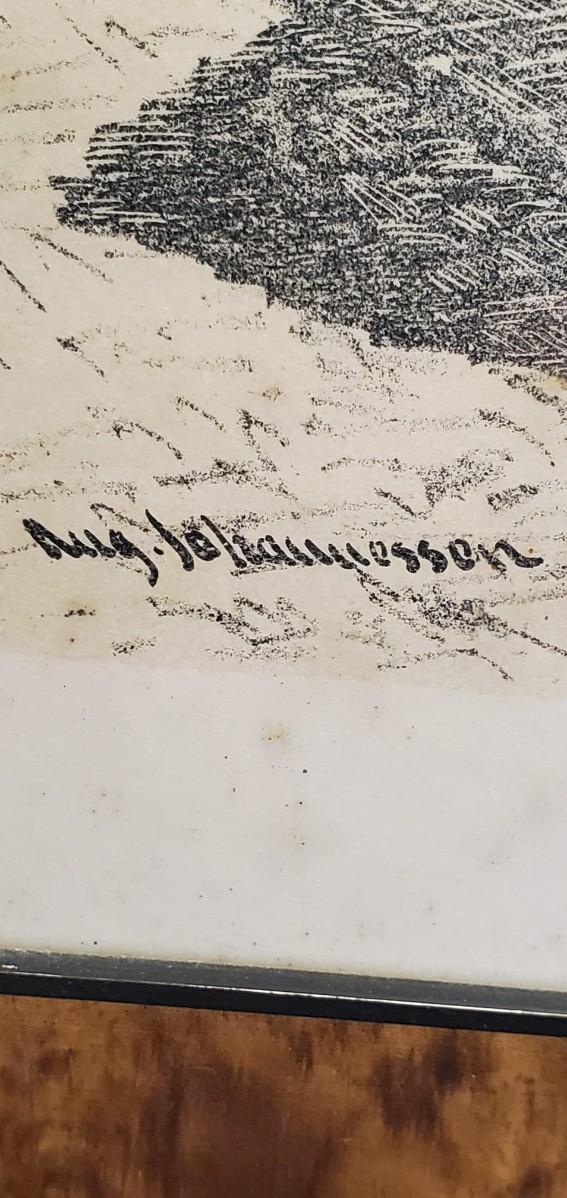 Aug. Johannessen